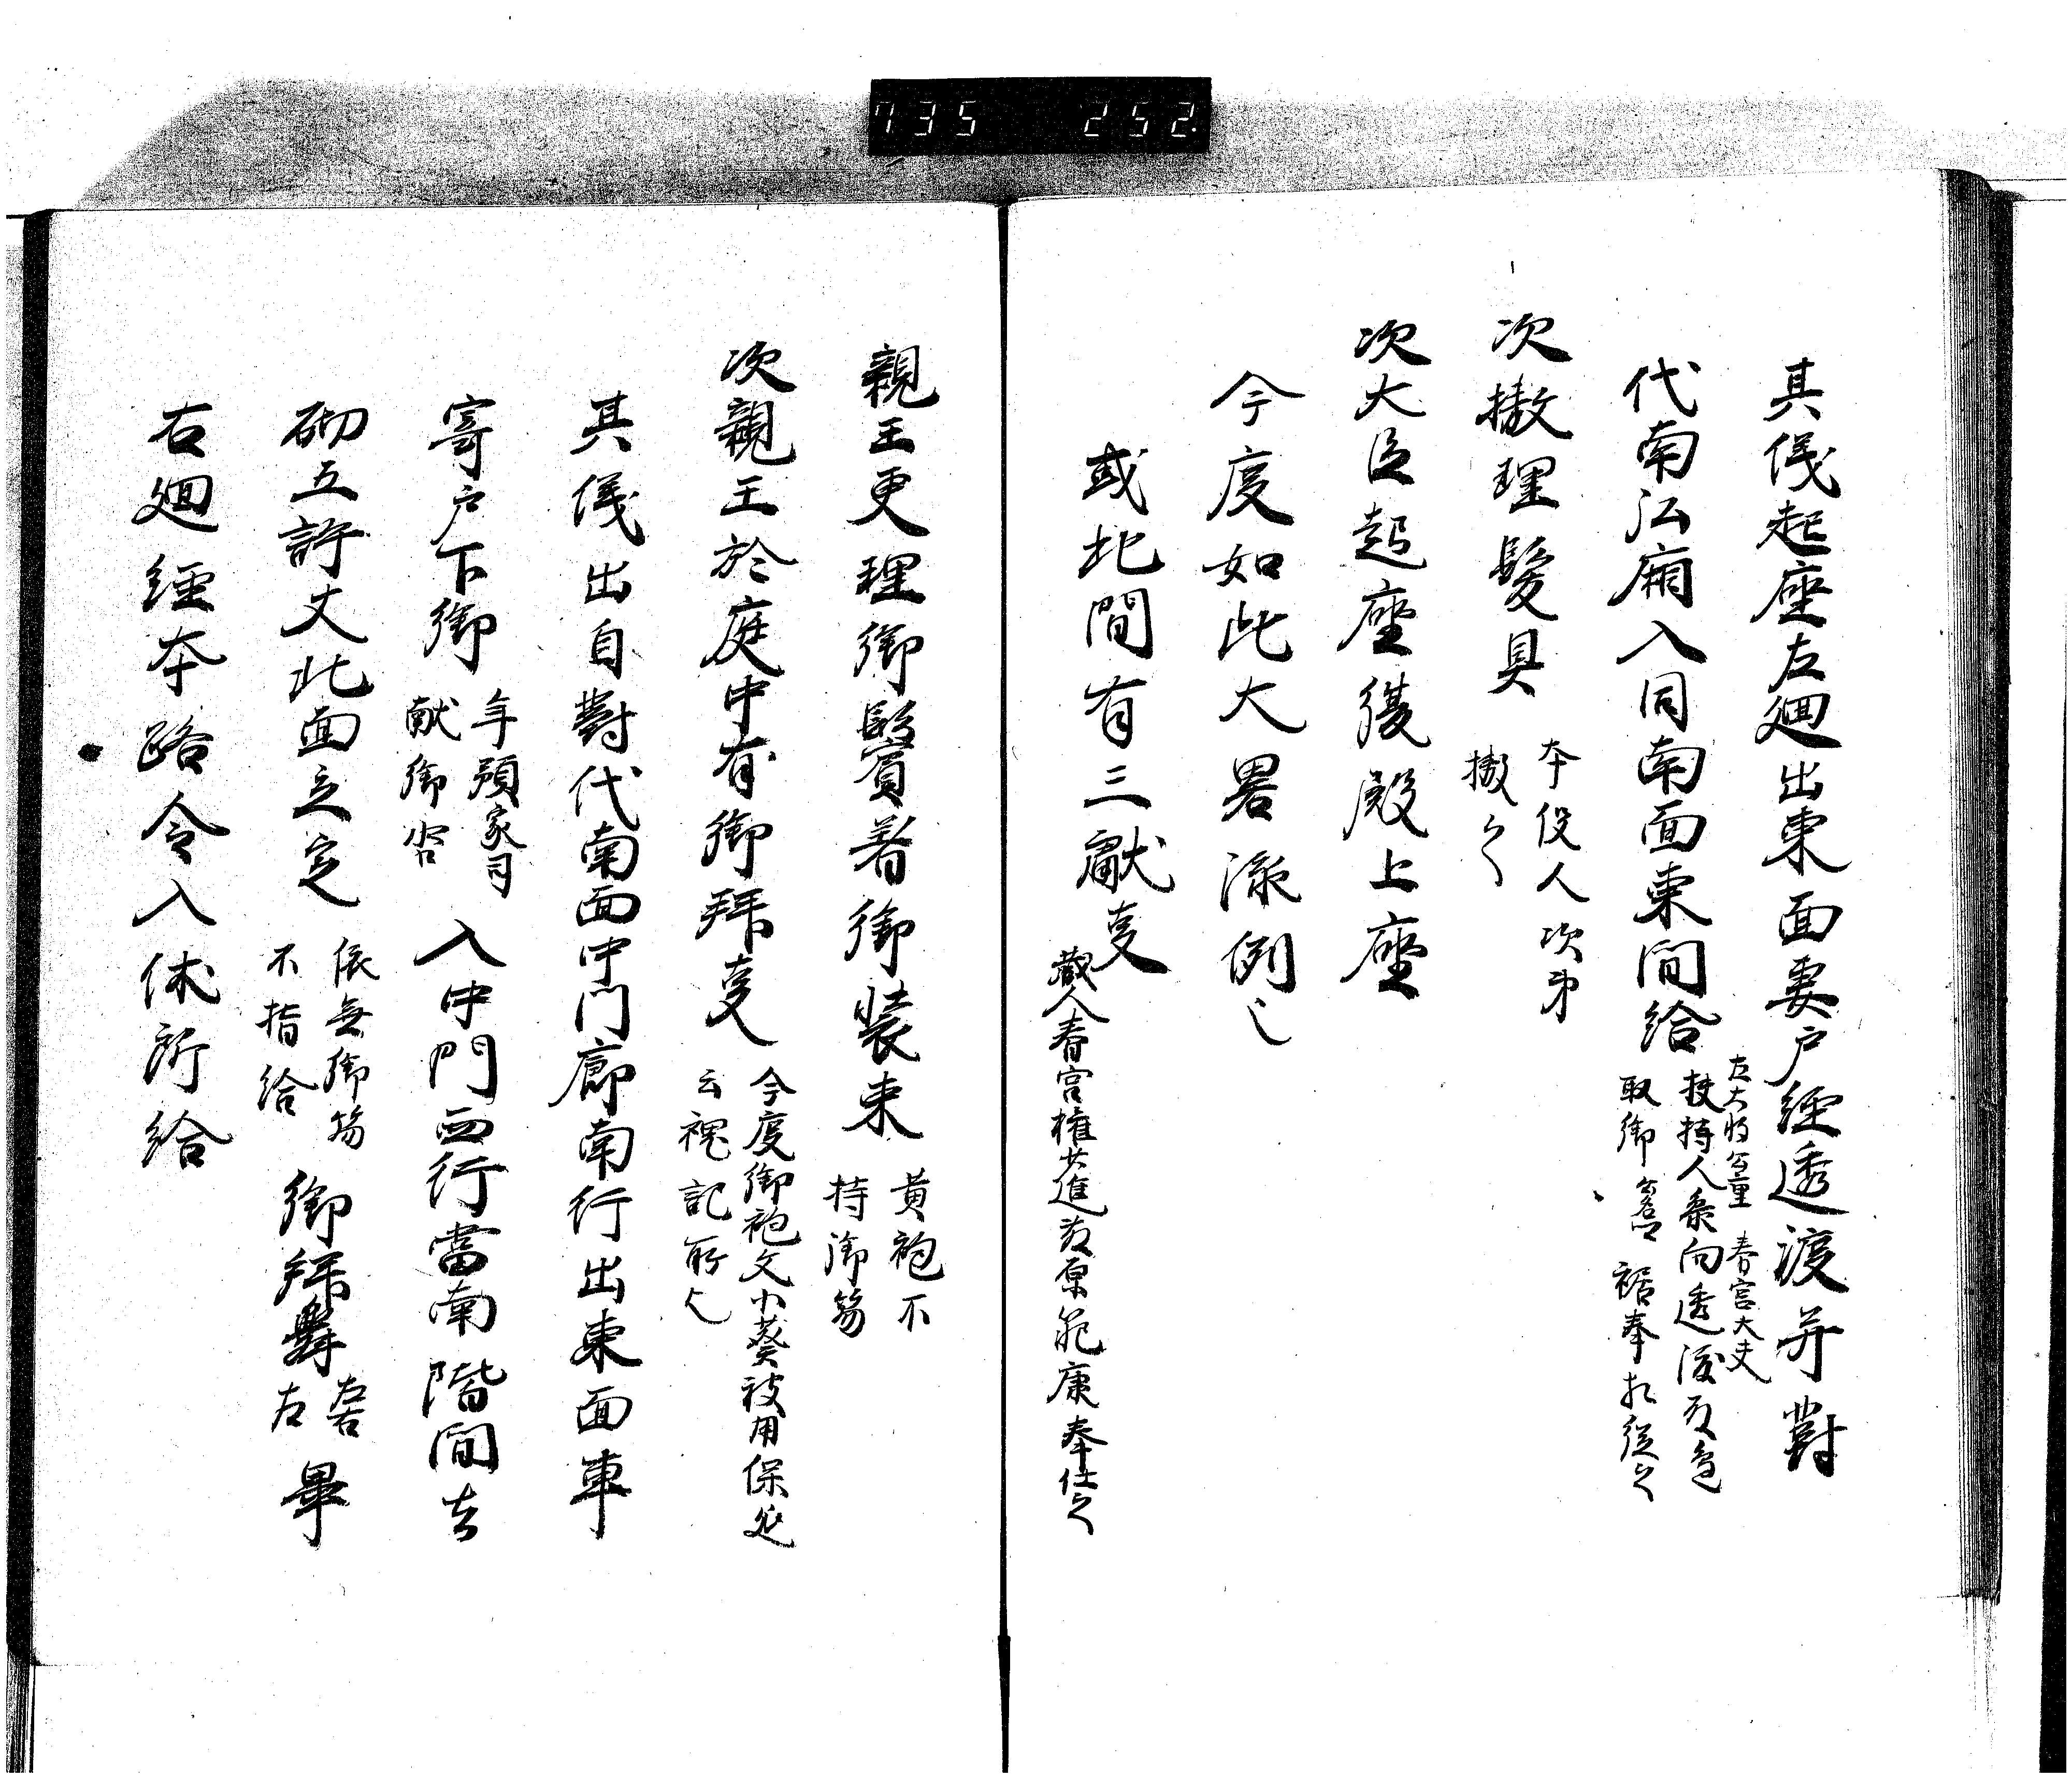 735 252.
其儀起座左廻出東面妻戸経透渡并對
代南弘廂入同南面東間給
左大将公重 春宮大夫
扶持人条向透渡殿邊
取御裾奉相従之
次撤理髪具
本役人次第
撤之
次大臣起座復殿上座
今度如此大畧添例之
或此間有三獻事
蔵人春宮権少進藤原範康奉仕之
親王更理御鬢着御装束
黄袍不
持御笏
次親王於庭中有御拜事
今度御袍文小葵被用保延
云槐記所也
其儀出自對代南面中門廊南行出東面車
寄戸下御
年預家司
献御沓
入中門西行當南階間去
砌五許丈北面立定
依無御笏
不揖給
御拜舞
左右
左
畢
右廻経本路令入休所給